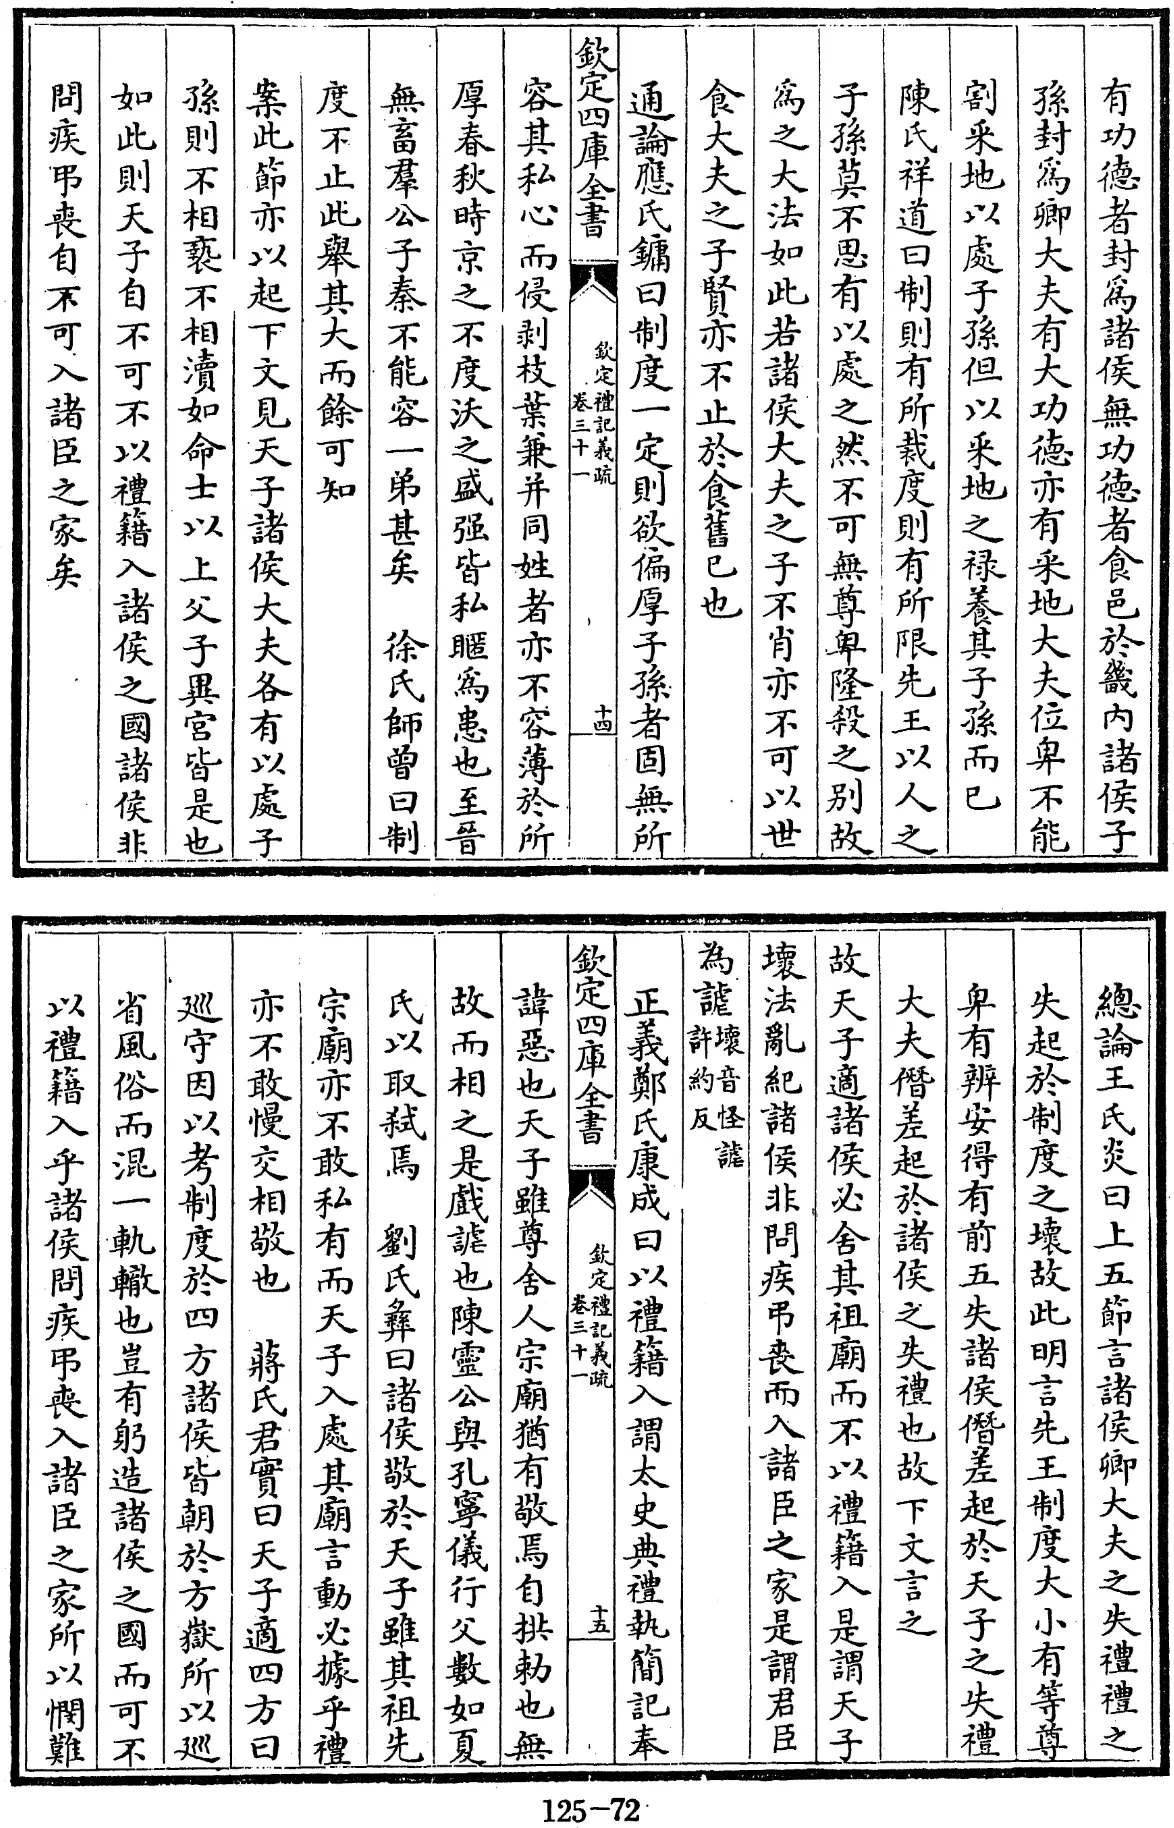 有功德者封爲諸侯無功德者食邑於畿内諸侯子
孫封爲卿大夫有大功德亦有采地大夫位卑不能
割采地以處子孫但以采地之禄養其子孫而已
陳氏祥道曰制則有所裁度則有所限先王以人之
子孫莫不思有以處之然不可無尊卑隆殺之别故
爲之大法如此若諸侯大夫之子不肖亦不可以世
食大夫之子賢亦不止於食舊已也
通論應氏鏞曰制度一定則欲偏厚子孫者固無所
欽定四庫全書
欽定禮記義疏
卷三十一
十四
容其私心而侵剥枝葉兼并同姓者亦不容薄於所
厚春秋時京之不度沃之盛强皆私暱爲患也至晉
無畜羣公子秦不能容一弟甚矣 徐氏師曾曰制
度不止此舉其大而餘可知
案此節亦以起下文見天子諸侯大夫各有以處子
孫則不相褻不相瀆如命士以上父子異宫皆是也
如此則天子自不可不以禮籍入諸侯之國諸侯非
問疾弔喪自不可入諸臣之家矣
總論王氏炎曰上五節言諸侯卿大夫之失禮禮之
失起於制度之壞故此明言先王制度大小有等尊
卑有辨安得有前五失諸侯僭差起於天子之失禮
大夫僭差起於諸侯之失禮也故下文言之
故天子適諸侯必舍其祖廟而不以禮籍入是謂天子
壞法亂紀諸侯非問疾弔喪而入諸臣之家是謂君臣
為謔壞音怪謔
許約反
正義鄭氏康成曰以禮籍入謂太史典禮執簡記奉
欽定四庫全書
欽定禮記義疏
卷三十一
十五
諱惡也天子雖尊舍人宗廟猶有敬焉自拱勑也無
故而相之是戲謔也陳靈公與孔寧儀行父數如夏
氏以取弑焉 劉氏彝曰諸侯敬於天子雖其祖先
宗廟亦不敢私有而天子入處其廟言動必據乎禮
亦不敢慢交相敬也 蔣氏君實曰天子適四方曰
巡守因以考制度於四方諸侯皆朝於方嶽所以巡
省風俗而混一軌轍也豈有躬造諸侯之國而可不
以禮籍入乎諸侯問疾弔喪入諸臣之家所以憫難
125-72